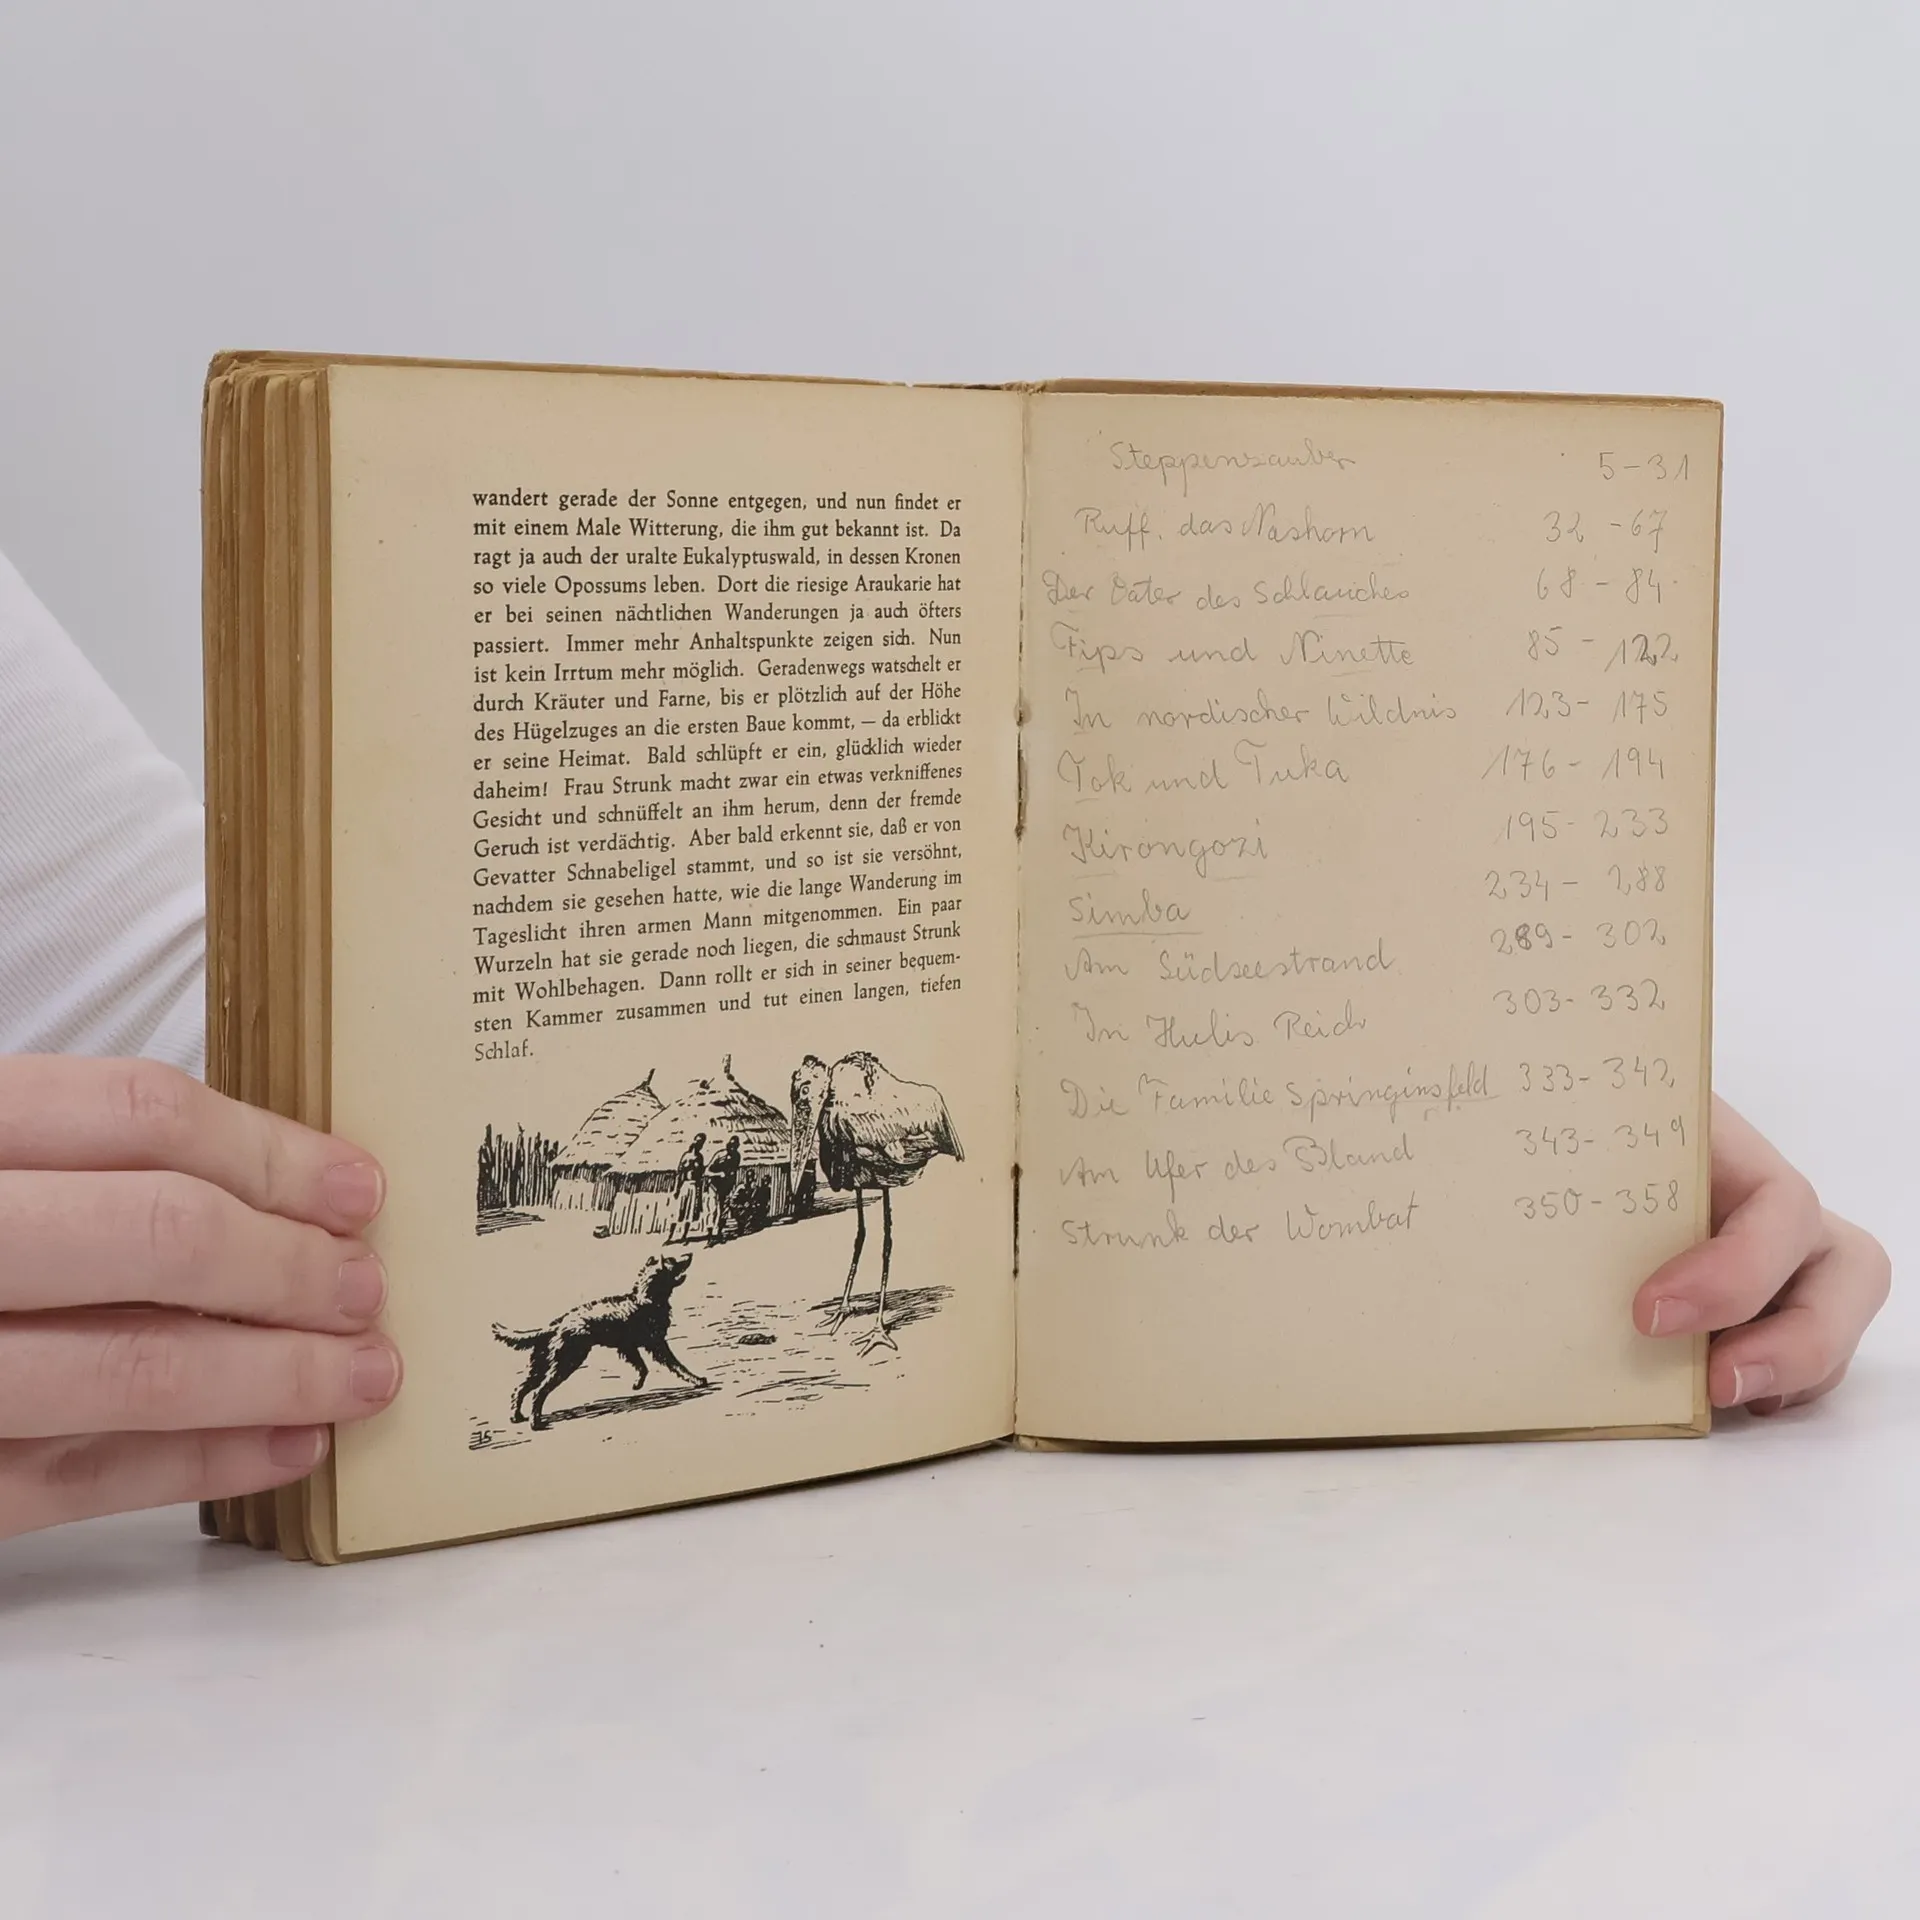 wandert gerade der Sonne entgegen, und nun findet er
mit einem Male Witterung, die ihm gut bekannt ist. Da
ragt ja auch der uralte Eukalyptuswald, in dessen Kronen
so viele Opossums leben. Dort die riesige Araukarie hat
er bei seinen nächtlichen Wanderungen ja auch öfters
passiert. Immer mehr Anhaltspunkte zeigen sich. Nun
ist kein Irrtum mehr möglich. Geradenwegs watschelt er
durch Kräuter und Farne, bis er plötzlich auf der Höhe
des Hügelzuges an die ersten Baue kommt, — da erblickt
er seine Heimat. Bald schlüpft er ein, glücklich wieder
daheim! Frau Strunk macht zwar ein etwas verkniffenes
Gesicht und schnüffelt an ihm herum, denn der fremde
Geruch ist verdächtig. Aber bald erkennt sie, daß er von
Gevatter Schnabeligel stammt, und so ist sie versöhnt,
nachdem sie gesehen hatte, wie die lange Wanderung im
Tageslicht ihren armen Mann mitgenommen. Ein paar
Wurzeln hat sie gerade noch liegen, die schmaust Strunk
mit Wohlbehagen. Dann rollt er sich in seiner bequem-
sten Kammer zusammen und tut einen langen, tiefen
Schlaf.
Steppenzauber 5-31
Ruff. das Nashorn 32 - 67
Der Vater des Schlauches 68 - 84
Fips und Ninette 85 - 122
In nordischer Wildnis 123 - 175
Tok und Tuka 176 - 194
Kirongozi 195 - 233
Simba 234 - 288
Am Südseestrand 289 - 302
In Hulis Reich 303 - 332
Die Familie Springinsfeld 333 - 342
Am Ufer des 343 - 349
Strunk der Wombat 350 - 358